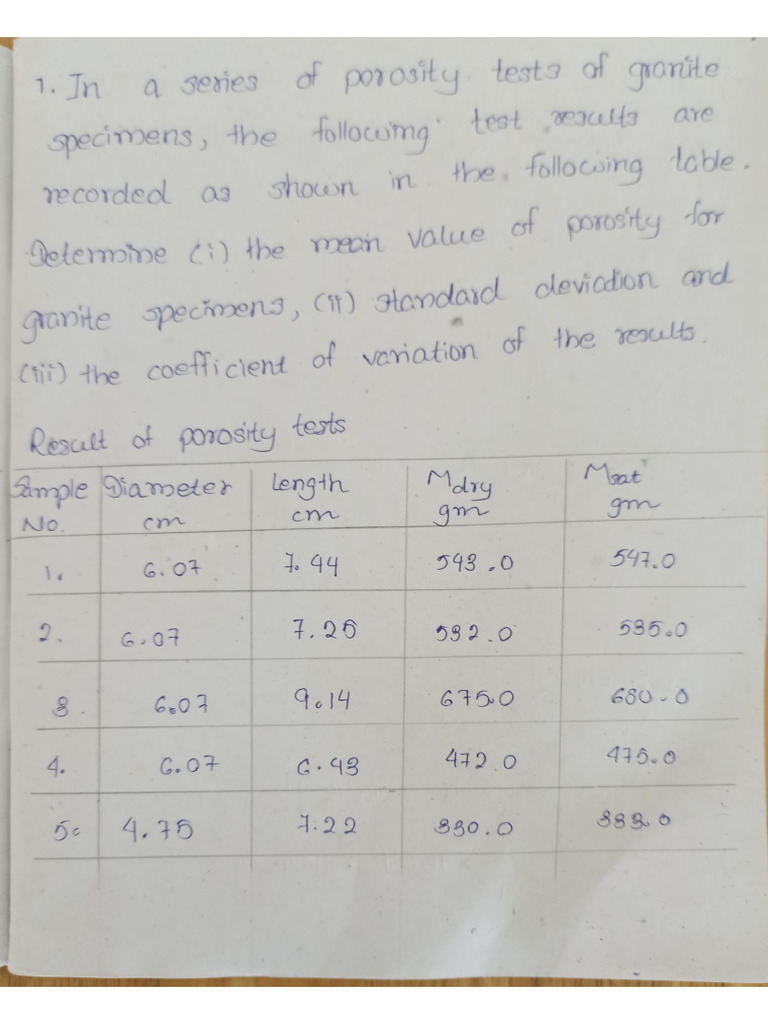 1. In a series of porosity tests of granite
specimens, the following test results are
recorded as shown in the following table.
Determine (i) the mean value of porosity for
granite specimens, (ii) standard deviation and
(iii) the coefficient of variation of the results.
Result of porosity tests
Sample No. Diameter cm Length cm Mdry gm Msat gm
1. 6.07 7.44 543.0 547.0
2. 6.07 7.25 532.0 535.0
3. 6.07 9.14 675.0 680.0
4. 6.07 6.43 472.0 475.0
5. 4.75 7.22 330.0 333.0